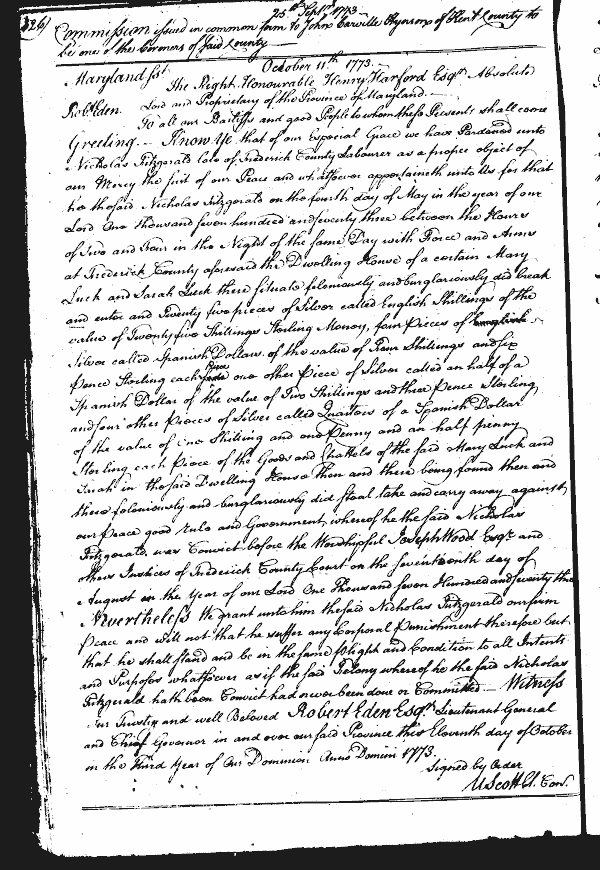 326)
25th Septr 1773
Commission issued in common form to John Carville Hynson of Kent County to
be one of the Coroners of said County
October 11th 1773.
Maryland sst
The Right Honourable Henry Harford Esqr Absolute
Robt Eden. Lord and Proprietary of the Province of Maryland.
To all our Bailiffs and good People to whom these Presents shall come
Greeting. Know Ye that of our Especial Grace we have Pardoned unto
Nicholas Fitzgerald late of Frederick County Labourer as a proper object of
our Mercy the suit of our Peace and whatsoever appertaineth unto Us for that
he the said Nicholas Fitzgerald on the fourth day of May in the year of our
Lord One thousand seven hundred and seventy three between the Hours
of Two and Four in the Night of the same Day with Force and Arms
at Frederick County aforesaid the Dwelling House of a certain Mary
Luck and Sarah Luck there situate feloniously and burglariously did break
and enter and Twenty five pieces of Silver called English Shillings of the
value of Twenty five Shillings Sterling Money, four Pieces of
Silver called Spanish Dollars of the value of Four Shillings and six
Pence Sterling each Piece one other Piece of Silver called an half of a
Spanish Dollar of the value of Two Shillings and three Pence Sterling
and four other Pieces of Silver called Quarters of a Spanish Dollar
of the value of One Shilling and one Penny and an half penny
Sterling each Piece of the Goods and Chattels of the said Mary Luck and
Sarah in the said Dwelling House then and there being found then and
there feloniously and burglariously did steal take and carry away against
our Peace good rule and Government, whereof he the said Nicholas
Fitzgerald, was Convict before the Worshipful Joseph Wood Esqr and
others Justices of Frederick County Court on the seventeenth day of
August in the Year of our Lord One Thousand seven Hundred and seventy three
Nevertheless We grant unto him the said Nicholas Fitzgerald our firm
Peace and will not that he suffer any Corporal Punishment therefore but
that he shall stand and be in the same plight and Condition to all Intents
and Purposes whatsoever as if the said Felony whereof he the said Nicholas
Fitzgerald hath been Convict had never been done or Committed Witness
our Trusty and well Beloved Robert Eden Esqr Lieutenant General
and Chief Governor in and over our said Province this Eleventh day of October
in the Third Year of Our Dominion Anno Domini 1773.
Signed by Order
U Scott Cl. Con.